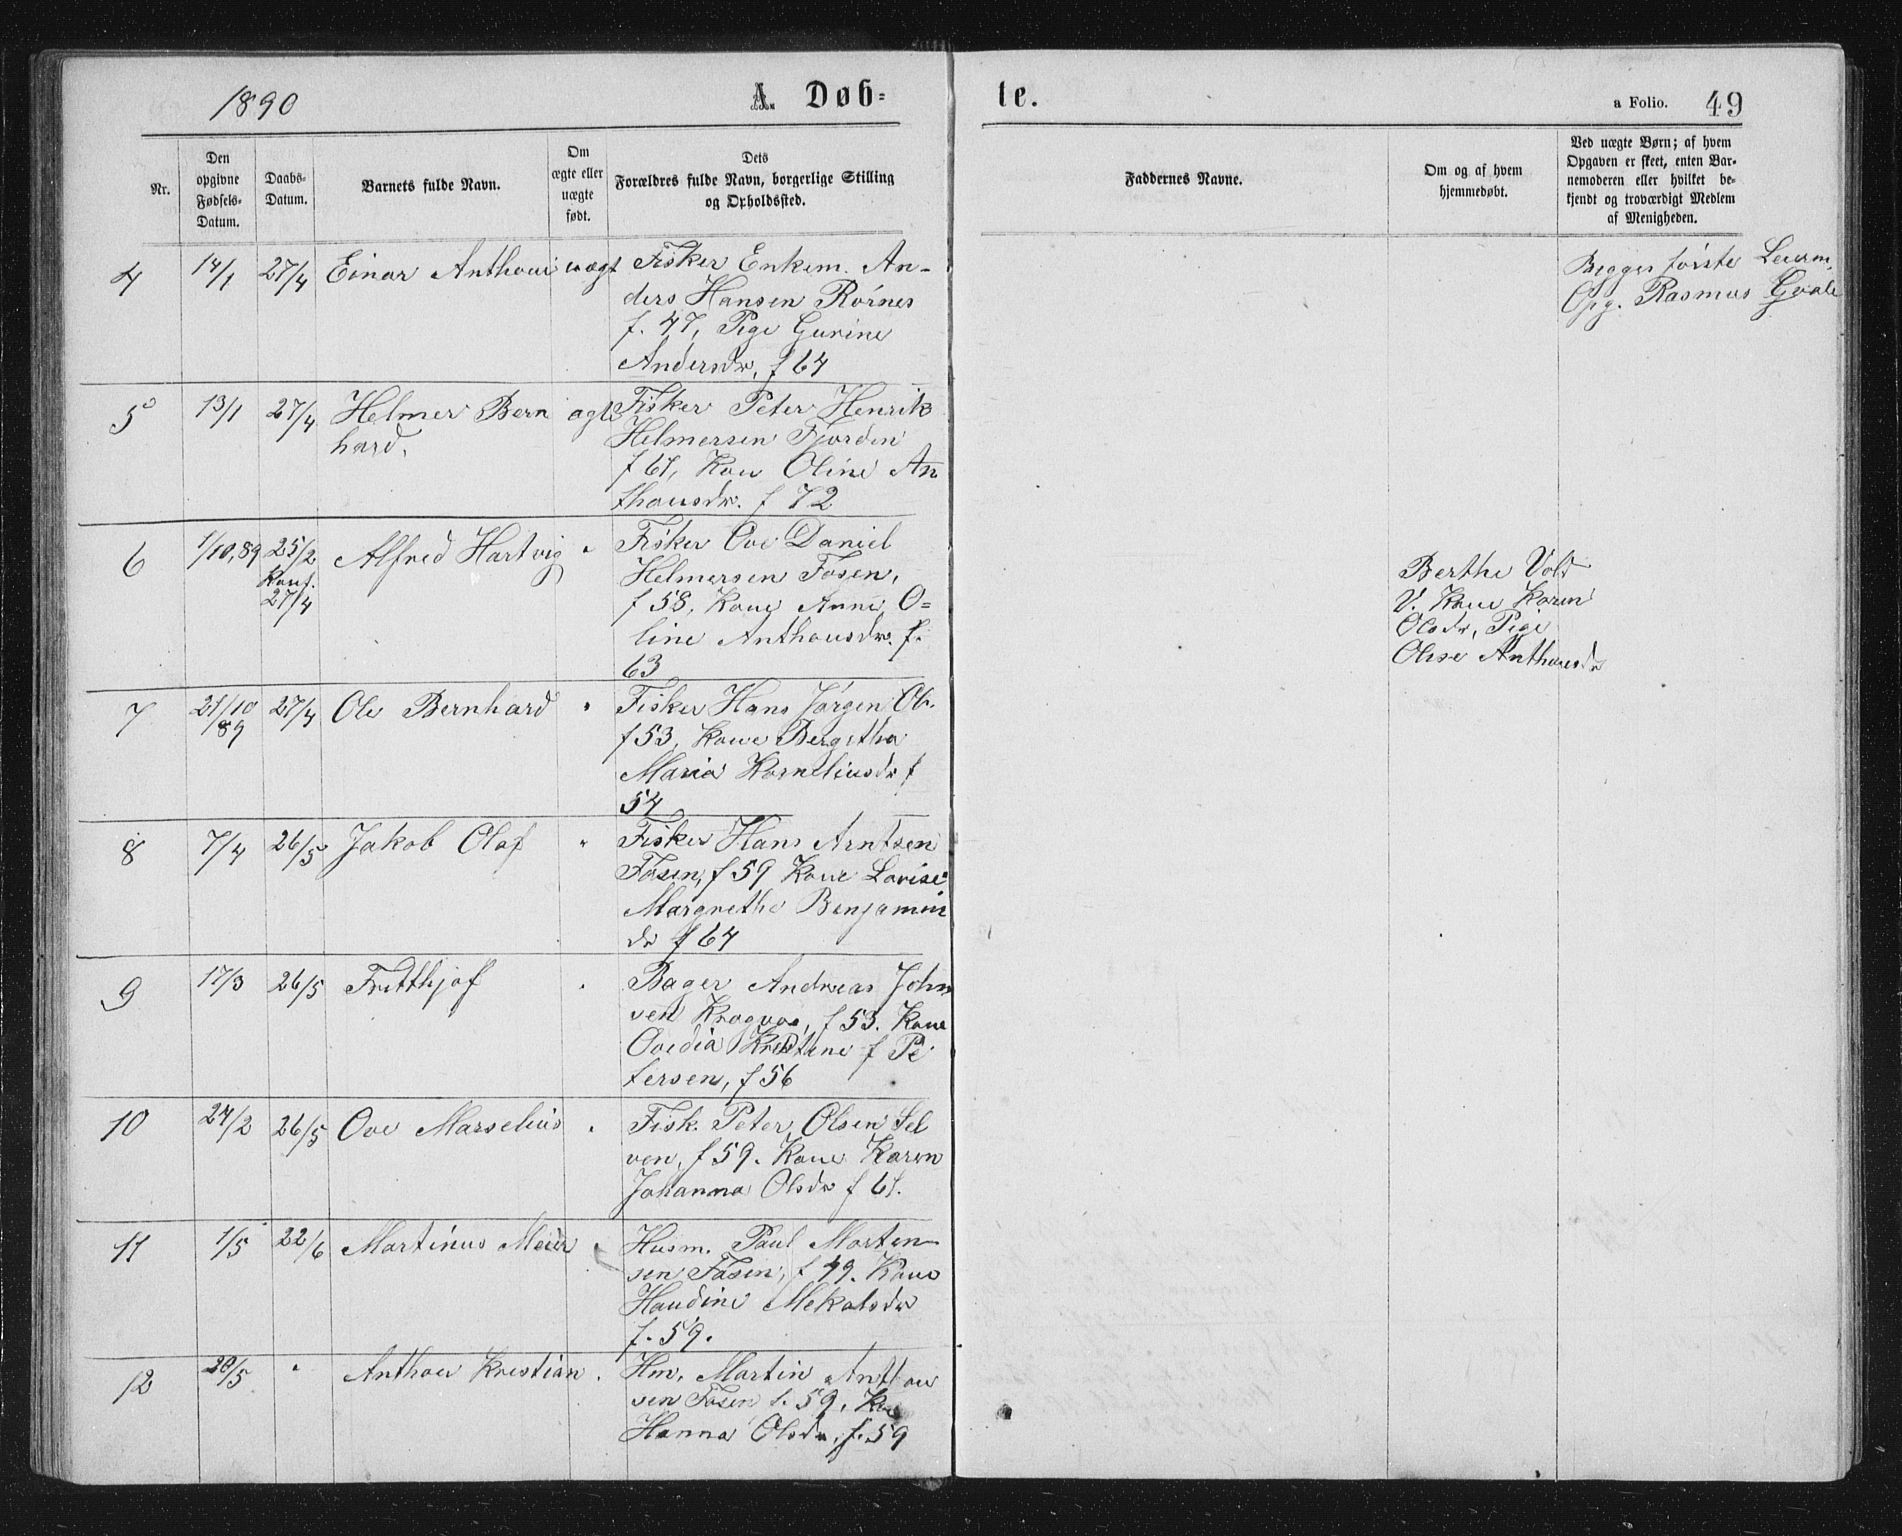 1890
A. Døb-
te.
a Folio. 49
Nr.
Den
opgivne
Fødsels-
Datum.
Daabs-
Datum.
Barnets fulde Navn.
Om
ægte eller
uægte
født.
Dets
Forældres fulde Navn, borgerlige Stilling
og Opholdssted.
Faddernes Navne.
Om og af hvem
hjemmedøbt.
Ved uægte Børn; af hvem
Opgaven er skeet, enten Bar-
nemoderen eller hvilket be-
kjendt og troværdigt Medlem
af Menigheden.
4 14/1 27/4 Einar Anthoni uægt Fisker Enkem. An-
ders Hansen Rørnes
f. 47, Pige Gurine
Andersdr, f 64
Begges første Leierm.
Opg. Rasmus
5 13/1 27/4 Helmer Bern ægte Fisker Peter Henrik
hard.
Helmersen Fjorden
f 61, Kone Oline An
thonsdr. f 72
6 1/10,89 25/2 Alfred Hartvig " Fisker Ove Daniel
Konf.
27/4
Helmersen Fosen,
f 58, Kone Anne O-
line Anthonsdr. f.
63
Berthe Vold
V. Kone Karen
Olsdr, Pige
Olise Anthonsdr
7 21/10 27/4 Ole Bernhard " Fisker Hans Jørgen Ols.
/89
f 53, Kone Bergitha
Maria Korneliusdr f
54
8 7/4 26/5 Jakob Olaf " Fisker Hans Arntsen
Fosen, f 59 Kone Lovise
Margrethe Benjamin
dr f 64
9 17/3 26/5 Fritthjof " Bager Andreas John
sen Kragvaa, f 53. Kone
Ovedia Kristine f Pe
tersen, f 56
10 24/2 26/5 Ove Marselius " Fisk. Peter Olsen Sel
ven, f 59. Kone Karen
Johanna Olsdr f 61.
11 1/5 22/6 Martinus Meier " Husm. Paul Morten
sen Fosen, f 49. Kone
Haudine Mekalsdr
f. 59.
12 20/5 " Anthon Kristian " Hm. Martin Anthon
sen Fosen f. 59, Kone
Hanna Olsdr, f. 59